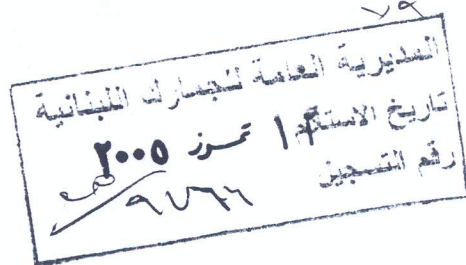 ٧٩
المديرية العامة للجمارك اللبنانية
تاريخ الاستلام تموز ٢٠٠٥
رقم التسجيل
٩٧٦٦